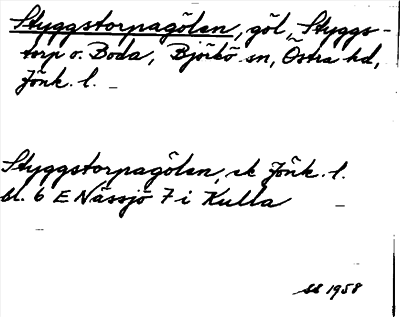 Styggstorpagölen, göl, Styggs-
torp o. Boda, Björkö sn, Östra hd,
Jönk. l.
Styggstorpagölen, ek Jönk. l.
bl. 6 E Nässjö 7 i Kulla
1958